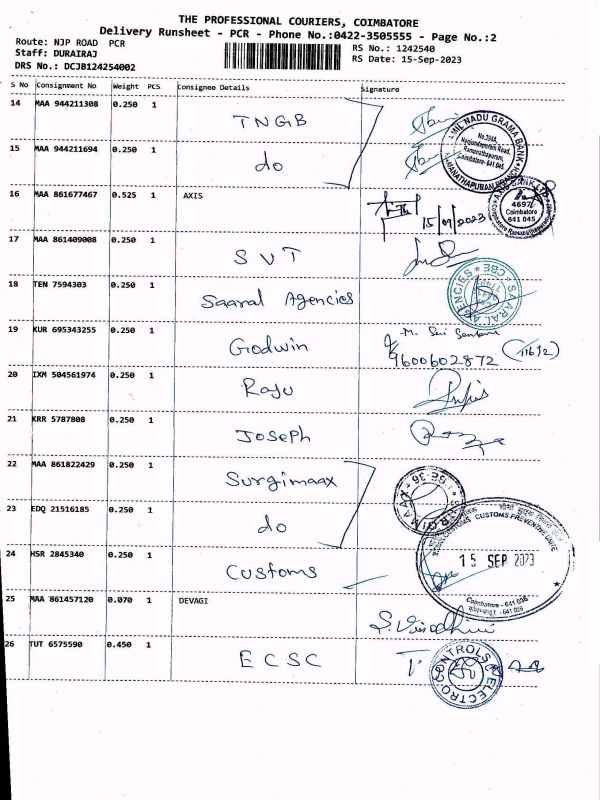 THE PROFESSIONAL COURIERS, COIMBATORE
Delivery Runsheet - PCR - Phone No.:0422-3505555 - Page No.:2
Route: NJP ROAD PCR
Staff: DURAIRAJ
DRS No.: DCJB124254002
RS No.: 1242540
RS Date: 15-Sep-2023
S No Consignment No Weight PCS Consignee Details Signature
14 MAA 944211308 0.250 1 TNGB
15 MAA 944211694 0.250 1 do
TAMIL NADU GRAMA BANK
No.394A,
Nanjundapuram Road,
Ramanathapuram,
Coimbatore - 641 045
RAMANATHAPURAM BRANCH
16 MAA 861677467 0.525 1 AXIS 15/09/2023
AXIS BANK LTD
4697
Coimbatore
641 045
17 MAA 861409008 0.250 1 SVT
18 TEN 7594303 0.250 1 Saaral Agencies
SAARAL AGENCIES CBE
19 KUR 695343255 0.250 1 Godwin
9600602872
20 IXM 504561974 0.250 1 Raju
21 KRR 5787808 0.250 1 Joseph
22 MAA 861822429 0.250 1 Surgimaax
SURGIMAAX
CBE-36
23 EDQ 21516185 0.250 1 do
24 HSR 2845340 0.250 1 Customs
CUSTOMS PREVENTIVE
15 SEP 2023
Coimbatore - 641 036
25 MAA 861457120 0.070 1 DEVAGI
26 TUT 6575590 0.450 1 ECSC
ELECTRO CONTROLS